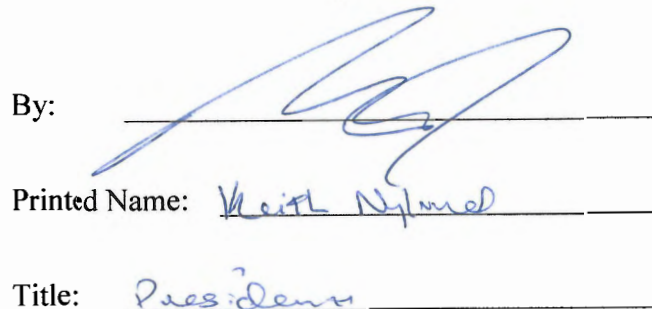 By:
Printed Name: Keith
Title: President